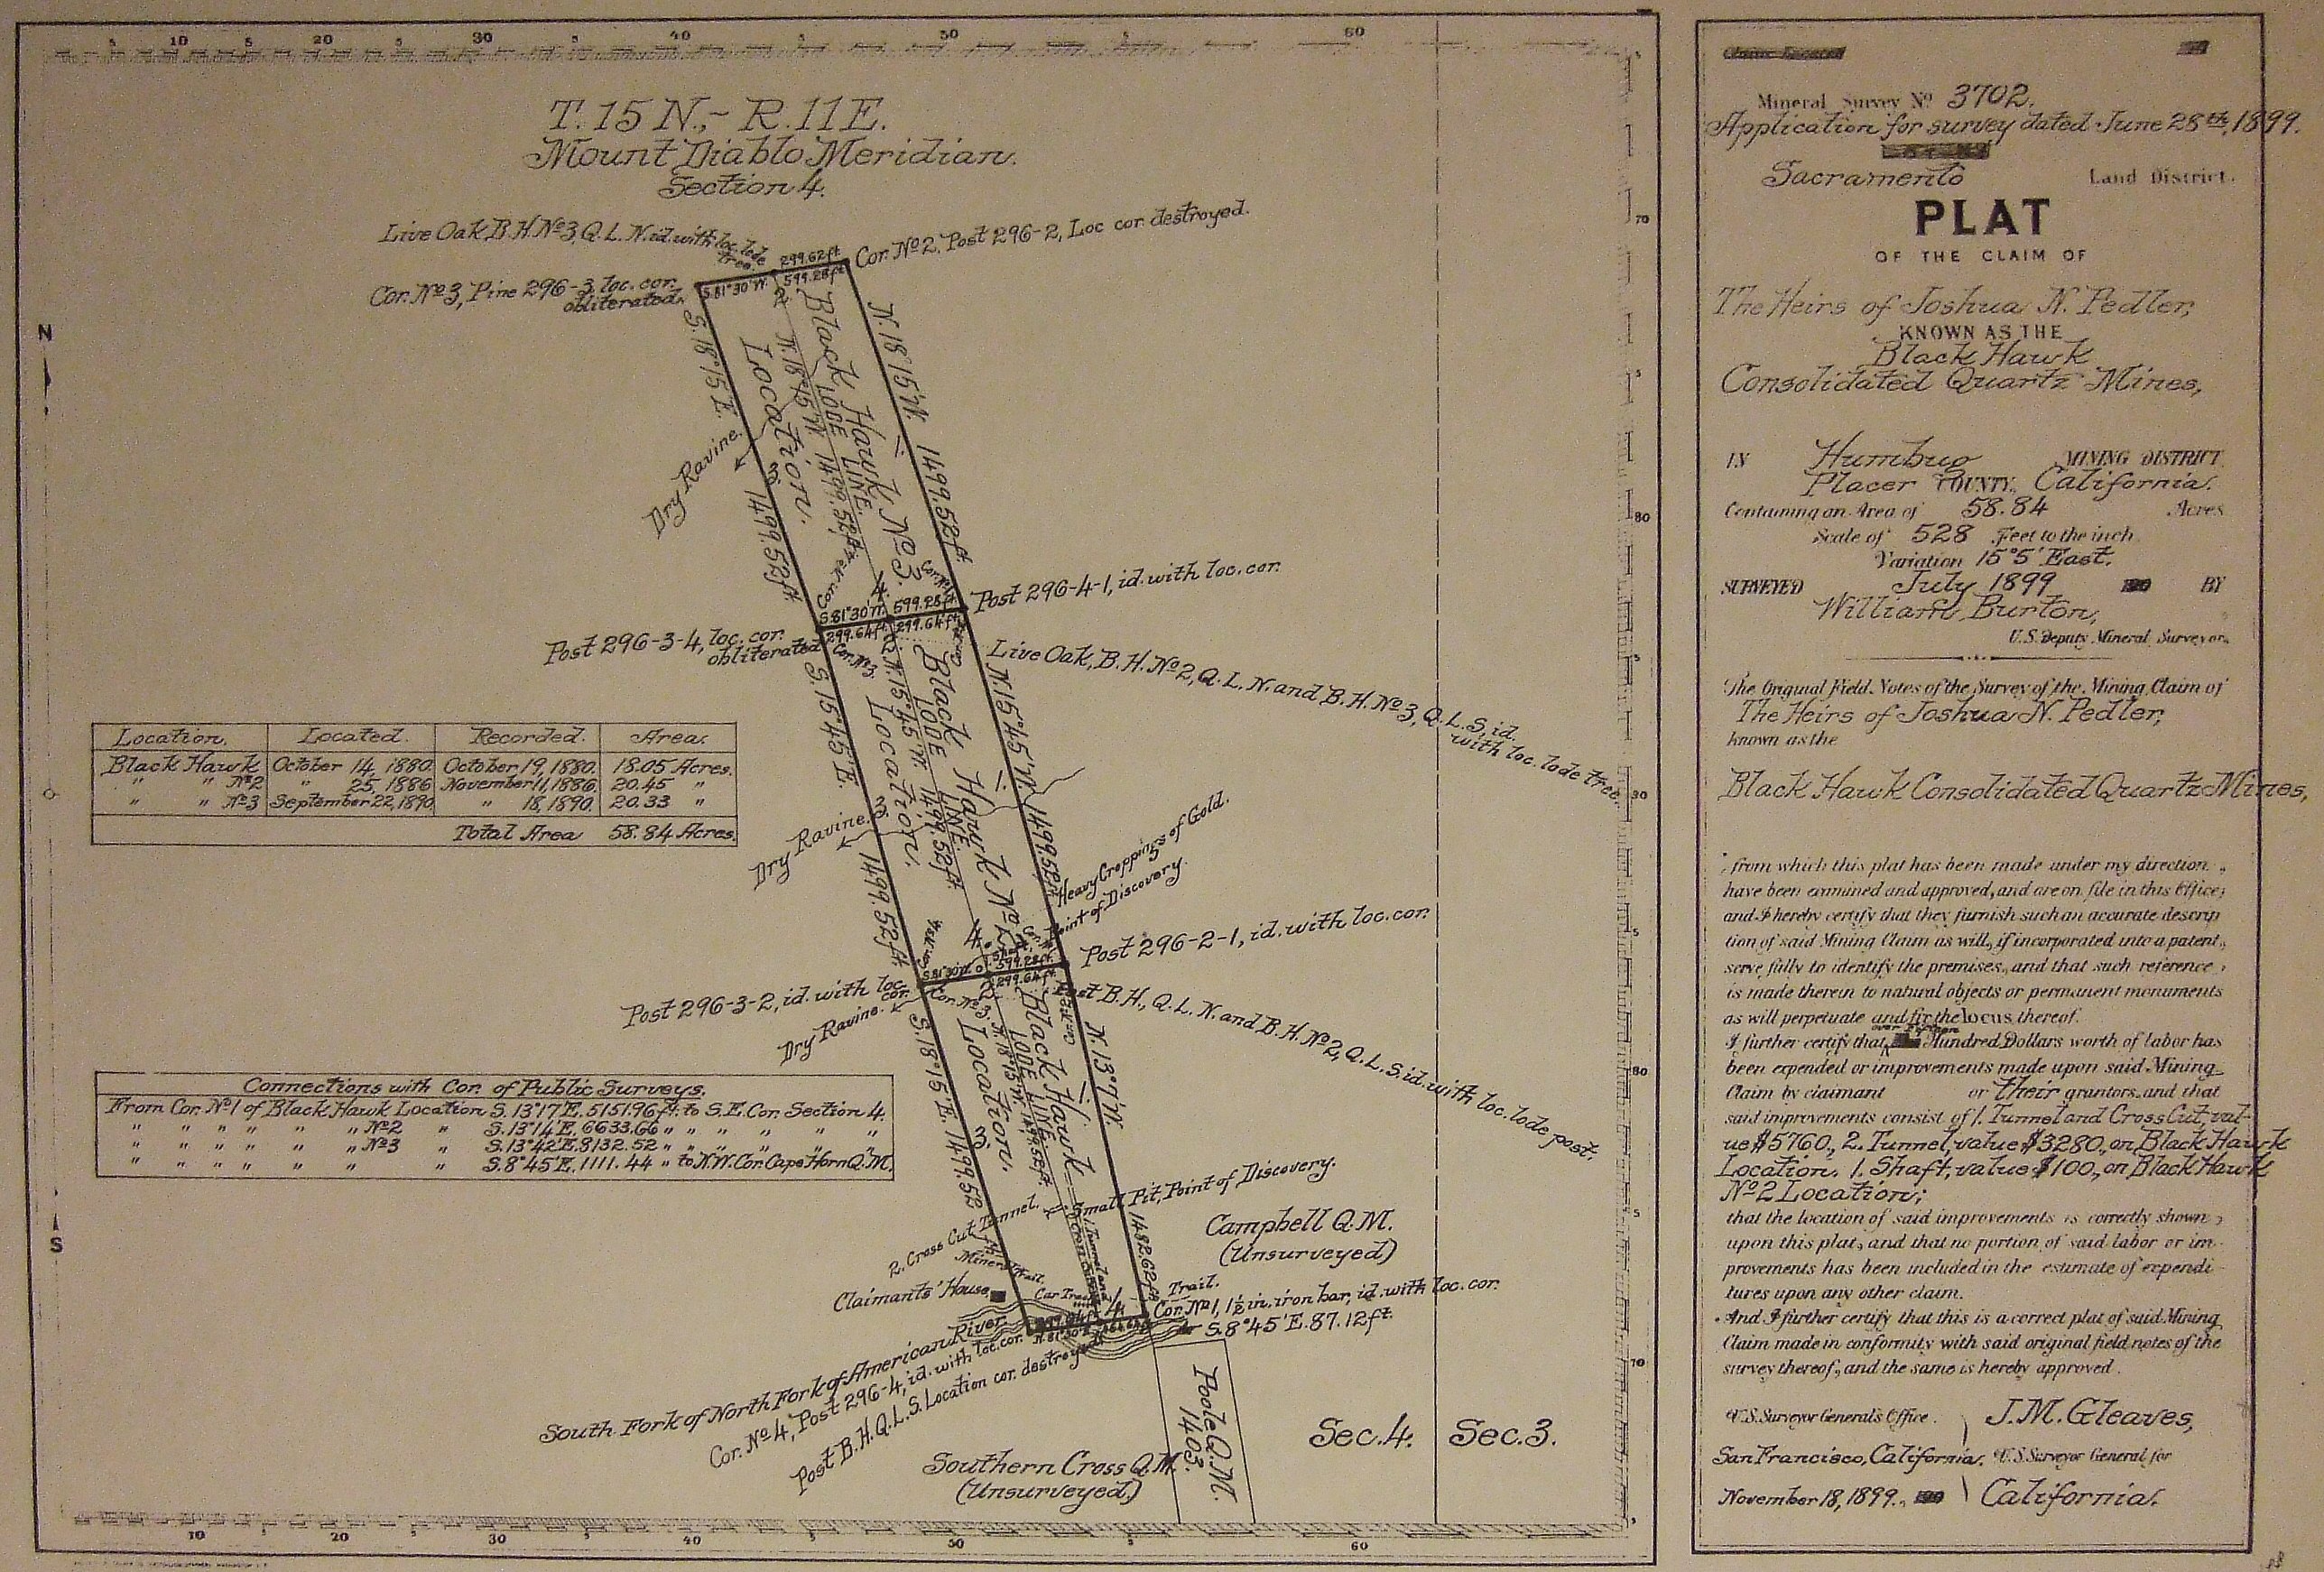 5 10 5 20 5 30 5 40 5 50 5 60
T. 15 N., - R. 11 E.
Mount Diablo Meridian.
Section 4.
Live Oak, B.H. Nº3, Q.L. N. id. with loc. lode
tree.
299.62 ft.
Cor. Nº2, Post 296-2, Loc cor. destroyed.
Cor. Nº3, Pine 296-3, loc. cor.
obliterated.
S. 81°30' W. 599.28 ft.
2.
S. 18°15' E. 1499.52 ft.
N. 18°15' W. 1499.52 ft.
Black Hawk Nº3.
Location.
LODE LINE.
N. 18°15' W. 1499.52 ft.
1.
3.
4.
Dry Ravine.
N
S. 81°30' W. 599.28 ft.
299.64 ft. 299.64 ft.
Post 296-4-1, id. with loc. cor.
Post 296-3-4, loc. cor.
obliterated.
Cor. Nº3
Live Oak, B.H. Nº2, Q.L. N. and B.H. Nº3, Q.L. S. id.
with loc. lode tree.
S. 15°45' E. 1499.52 ft.
N. 15°45' W. 1499.52 ft.
Black Hawk Nº2
Location.
LODE LINE.
N. 15°45' W. 1499.52 ft.
1.
3.
4.
Dry Ravine.
Heavy Croppings of Gold.
Point of Discovery.
Location. Located. Recorded. Area.
Black Hawk October 14, 1880. October 19, 1880. 18.05 Acres.
" " Nº2 " 25, 1886 November 11, 1886. 20.45 "
" " Nº3 September 22, 1890. " 18, 1890. 20.33 "
Total Area 58.84 Acres.
S. 81°30' W. 599.28 ft.
299.64 ft.
Post 296-2-1, id. with loc. cor.
Post 296-3-2, id. with loc.
cor.
Cor. Nº3.
Dry Ravine.
Post B.H., Q.L. N. and B.H. Nº2, Q.L. S. id. with loc. lode post.
S. 18°15' E. 1499.52
N. 13°7' W. 1482.62 ft.
Black Hawk
Location.
LODE LINE
N. 18°15' W.
1.
3.
4.
Connections with Cor. of Public Surveys.
From Cor. Nº1 of Black Hawk Location S. 13°17' E. 5151.96 ft. to S.E. Cor. Section 4.
" " " " " " Nº2 " S. 13°14' E. 6633.66 " " " " " "
" " " " " " Nº3 " S. 13°42' E. 8132.52 " " " " " "
" " " " " " " S. 8°45' E. 1111.44 " to N.W. Cor. Cape Horn Q.M.
S
2. Cross Cut Tunnel.
Small Pit, Point of Discovery.
Campbell Q.M.
(Unsurveyed)
Miners' Trail.
Claimants' House
Trail.
Cor. Nº1, 1½ in. iron bar, id. with loc. cor.
S. 8°45' E. 87.12 ft.
South Fork of North Fork of American River
Cor. Nº4, Post 296-4, id. with loc. cor.
Post B.H. Q.L. S. Location cor. destroyed
Poole Q.M.
1403.
Southern Cross Q.M.
(Unsurveyed.)
Sec. 4. Sec. 3.
5 70 5 80 5 30 5 80 5 70 5
10 5 20 5 30 5 40 5 50 5 60
Mineral Survey Nº 3702.
Application for survey dated June 28th, 1899.
Sacramento Land District.
PLAT
OF THE CLAIM OF
The Heirs of Joshua N. Pedler,
KNOWN AS THE
Black Hawk
Consolidated Quartz Mines,
IN Humbug MINING DISTRICT
Placer COUNTY, California.
Containing an Area of 58.84 Acres
Scale of 528 Feet to the inch
Variation 15°5' East.
SURVEYED July 1899 BY
William Burton,
U.S. Deputy Mineral Surveyor.
The Original Field Notes of the Survey of the Mining Claim of
The Heirs of Joshua N. Pedler,
known as the
Black Hawk Consolidated Quartz Mines,
from which this plat has been made under my direction
have been examined and approved, and are on file in this Office;
and I hereby certify that they furnish such an accurate descrip
tion of said Mining Claim as will, if incorporated into a patent,
serve fully to identify the premises, and that such reference
is made therein to natural objects or permanent monuments
as will perpetuate and fix the locus thereof.
over Fifteen
I further certify that Hundred Dollars worth of labor has
been expended or improvements made upon said Mining
Claim by claimant or their grantors, and that
said improvements consist of 1. Tunnel and Cross Cut, val-
ue $5760., 2. Tunnel, value $3280., on Black Hawk
Location. 1. Shaft, value $100., on Black Hawk
Nº2 Location;
that the location of said improvements is correctly shown
upon this plat, and that no portion of said labor or im-
provements has been included in the estimate of expendi-
tures upon any other claim.
And I further certify that this is a correct plat of said Mining
Claim made in conformity with said original field notes of the
survey thereof, and the same is hereby approved.
U.S. Surveyor General's Office. J.M. Gleaves,
San Francisco, California. U.S. Surveyor General for
November 18, 1899. California.